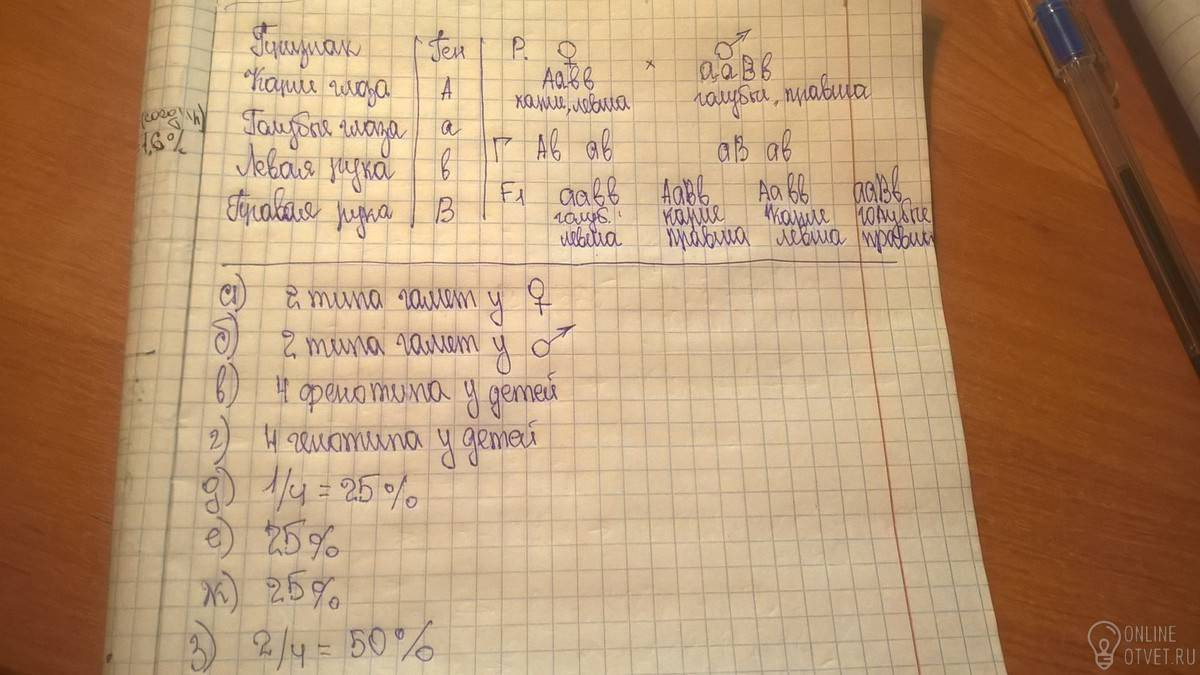 Признак Ген
Карие глаза А
Голубые глаза а
Левая рука в
Правая рука В
Р. ♀ × ♂
Аавв ааВв
карие, левша голубые, правша
Г Ав ав аВ ав
F1 аавв АаВв Аавв ааВв
голуб. карие карие голубые
левша правша левша правша
а) 2 типа гамет у ♀
б) 2 типа гамет у ♂
в) 4 фенотипа у детей
г) 4 генотипа у детей
д) 1/4 = 25%
е) 25%
ж) 25%
з) 2/4 = 50%
ONLINE
OTVET.RU